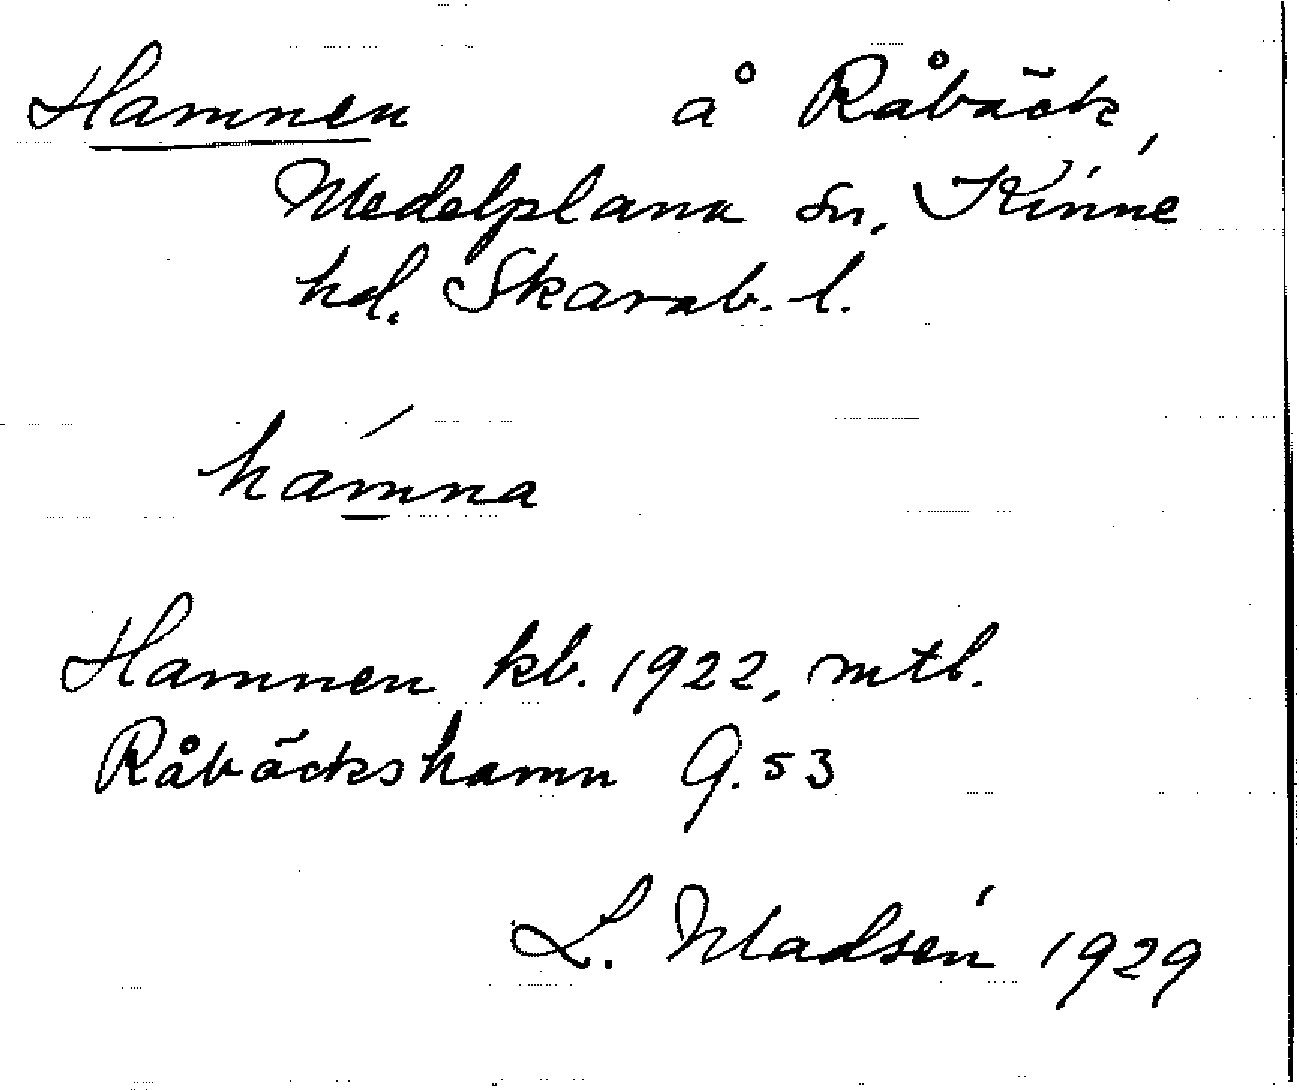 Hamnen å Råbäck,
Medelplana sn, Kinne
hd. Skarab. l.
hámna
Hamnen kb. 1922, mtl.
Råbäckshamn G. 53
L. Madsén 1929